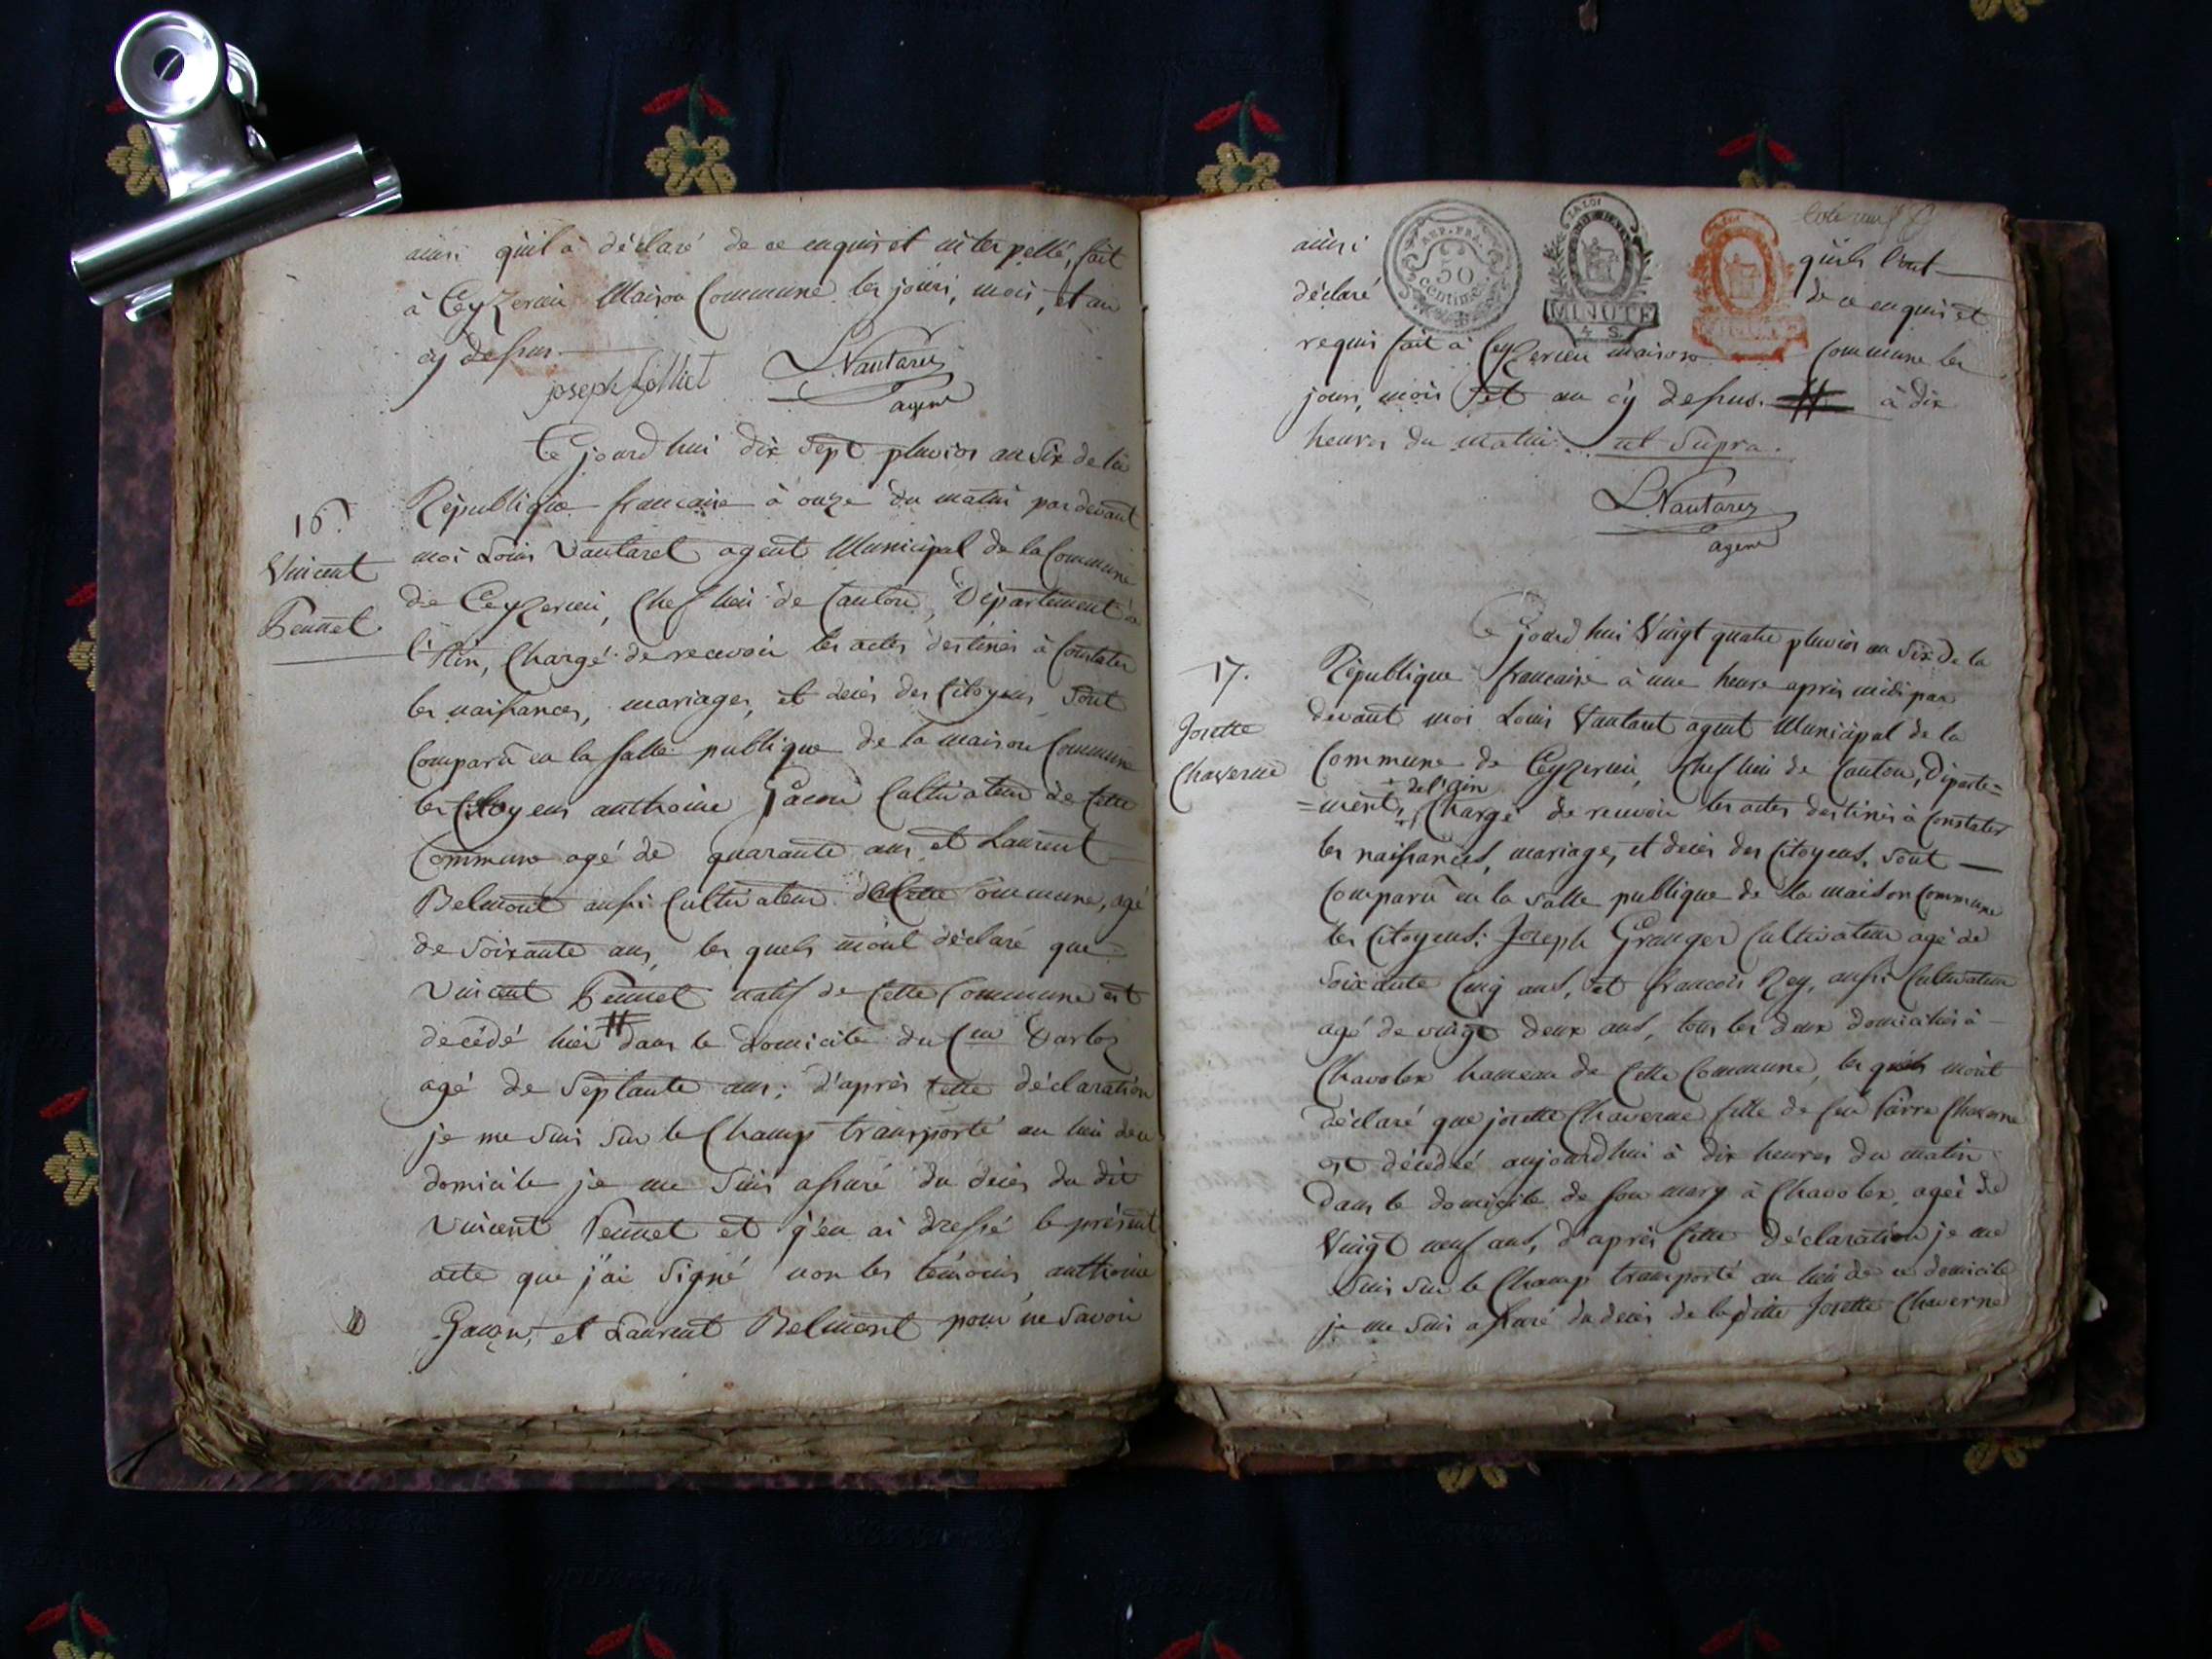 ainsi qu'il à déclaré de ce enquis et interpellé, fait
à Ceyzerieu Maison Commune les jours, mois, et an
cy dessus
joseph
LVantaret
agent
Ce jourd'hui dix sept pluvios an six de la
République francaise à onze du matin pardevant
moi Louis Vantaret agent Municipal de la Commune
de Ceyzerieu, Chef lieu de Canton, Département de
l'Ain, Chargé de recevoir les actes destinés à Constater
les naissances, mariages, et décès des Citoyens, Sont
Comparu en la Salle publique de la maison Commune
les Citoyens anthoine Cultivateur de Cette
Commune agé de quarante ans et Laurent
Belmont aussi Cultivateur de Cette Commune, agé
de Soixante ans, les quels m'ont déclaré que
Vincent Pennet natif de Cette Commune est
décédé hier # dans le Domicile du Cen
agé de Septante ans; d'après cette déclaration
je me Suis Sur le Champ transporté au lieu de ce
domicile je me Suis assuré du décès du dit
Vincent Pennet et j'en ai dressé le présent
acte que j'ai Signé non les témoins anthoine
et Laurent Belmont pour ne Savoir
16.
Vincent
Pennet
ainsi qu'ils l'ont
déclaré de ce enquis et
requis fait à Ceyzerieu maison Commune les
jours, mois et an cy dessus. # à dix
heures du matin. ut Supra.
LVantaret
agent
REP. FRA.
50
centimes
LA LOI
MINUTE
4 S
LA LOI
MINUTE
Ce jourd'hui Vingt quatre pluvios an Six de la
République francaise à une heure après midi par
devant moi Louis Vantaret agent Municipal de la
Commune de Ceyzerieu, Chef lieu de Canton, Départe=
=ment, + de l'ain Chargé de recevoir les actes destinés à Constater
les naissances, mariages, et décès des Citoyens. Sont
Comparu en la Salle publique de la maison Commune
les Citoyens: Joseph Granger Cultivateur agé de
Soixante Cinq ans, et francois Rey, aussi Cultivateur
agé de vingt deux ans, tous les deux domiciliés à
Chavolex hameau de Cette Commune, les quels m'ont
déclaré que josette Chaverne fille de feu Pierre Chaverne
est décédée aujourd'hui à dix heures du matin
dans le domicile de son mary à Chavolex, ageé de
Vingt neuf ans, d'après Cette déclaration je me
Suis Sur le Champ transporté au lieu de ce domicile
je me Suis assuré du décès de la ditte Josette Chaverne
17.
Josette
Chaverne